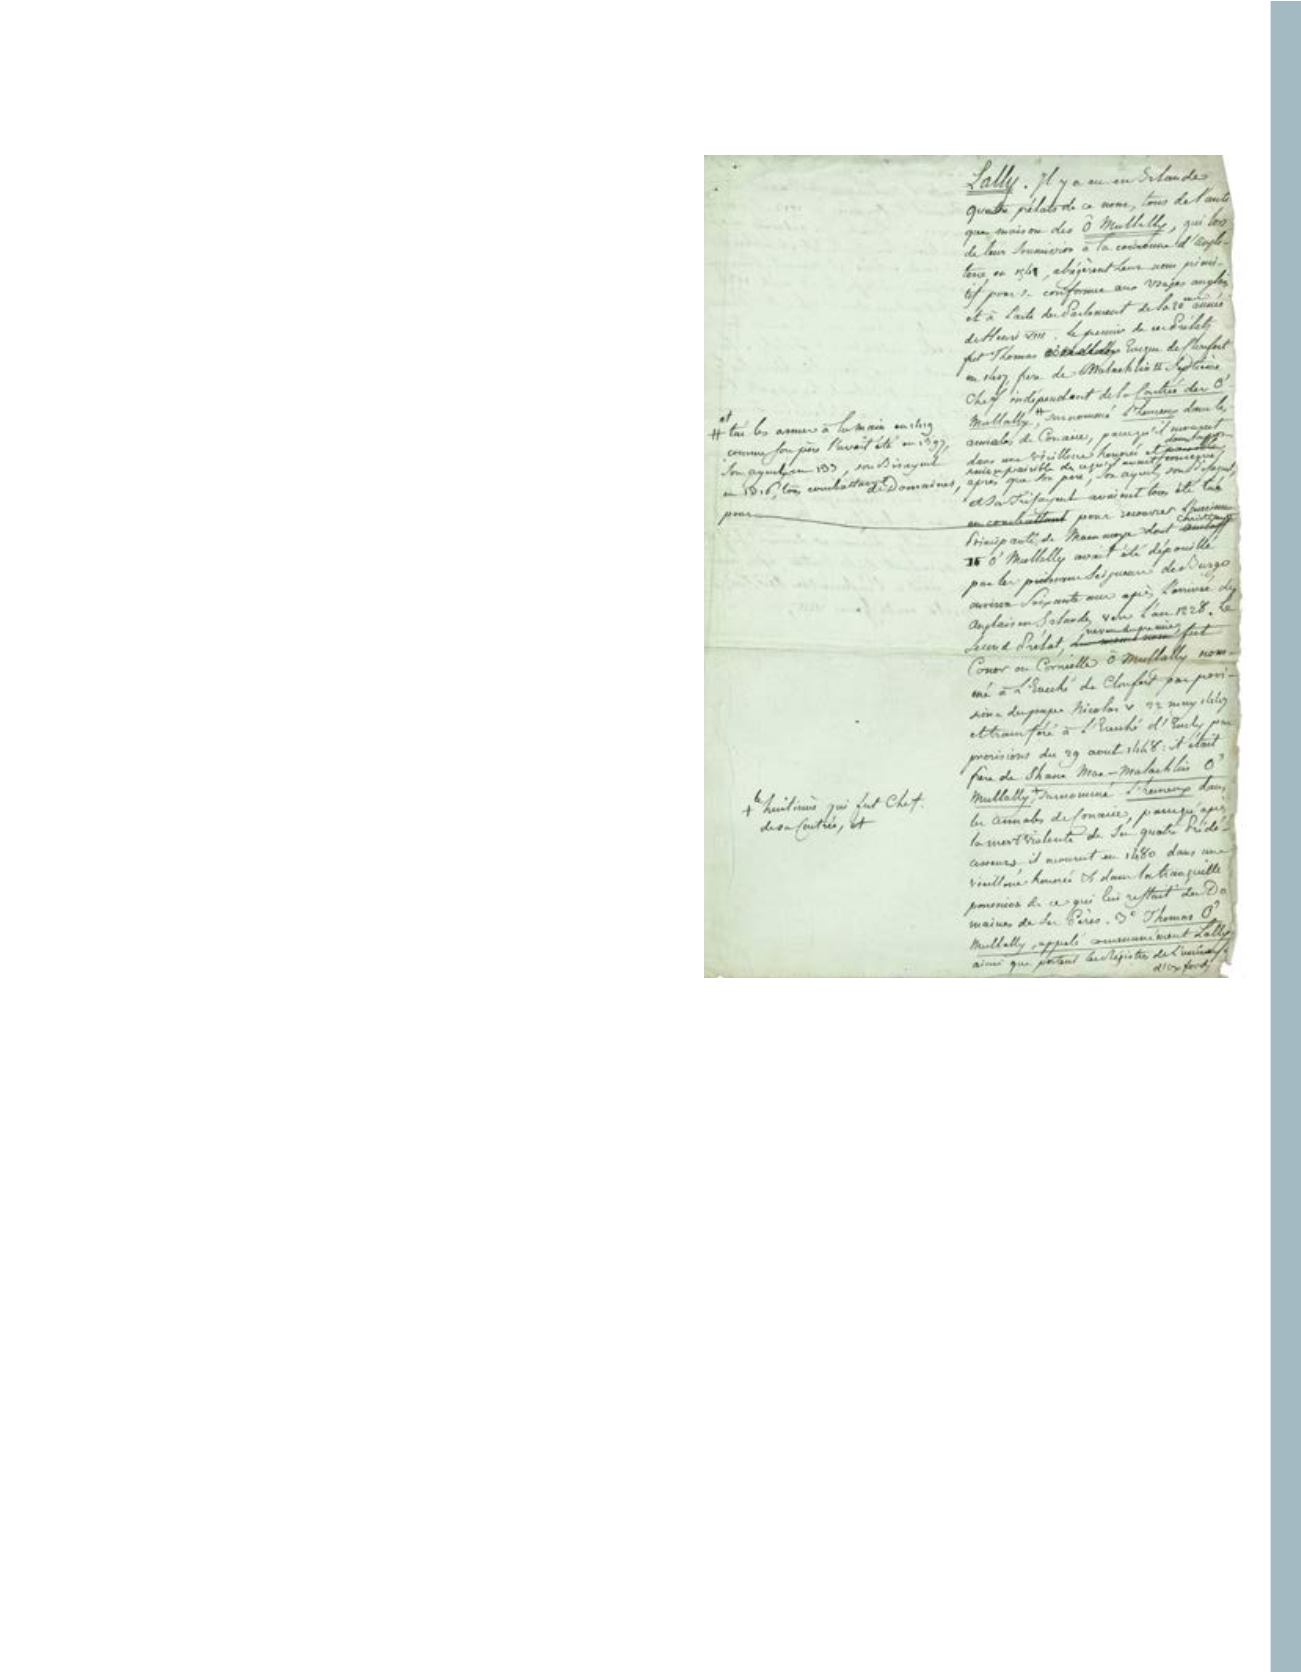 Lally. Il y a eu en Irlande
quatre prélats de ce nom, tous de l'anti
que maison des Ô Mullally, qui lors
de leur soumission à la couronne d'Angle-
terre en 1541, abrégèrent leur nom primi-
tif pour se conformer aux usages anglais
et à l'acte du Parlement de la 20me année
de Henri VIII. Le premier de ces Prélats
fut Thomas Evêque de Clonfert
en frère de Malachlin Septième
Chef indépendant de la Contrée des O'
Mullally, # surnommé dans les
annales de Conacie, parcequ'il mourut
dans une vieillesse honorée et
après que son père, son ayeul, son Bisayeul
et son Trisayeul avaient tous été tué
en combattant pour recouvrer
Principauté de Maenmoye dont
O' Mullally avait été dépouillé
par les premiers Seigneurs de Burgo
environ Soixante ans après l'arrivée des
Anglais en Irlande, vers l'an 1228. Le
second Prélat, fut
Conor ou Cornielle Ô Mullally nom-
mé à l'Evêché de Clonfert par provi-
sions du pape Nicolas V 22 may
et transféré à l'Evêché d'Emly par
provisions du 29 aout 1448: il était
frère de Shane Mac-Malachlin O'
Mullally, + surnommé dans
les annales de Conacie, parcequ'après
la mort violente de ses quatre Prédé-
cesseurs il mourut en 1480 dans une
vieillesse honorée & dans la tranquille
possession de ce qui lui restait des Do
maines de ses Pères. 3° Thomas O'
Mullally, appelé communément Lally
ainsi que portent les Registres de l'université
d'oxford,
et
# tué les armes à la main en 1419
comme son père l'avait été en 1397,
son ayeul en son Bisayeul
en 1316, tous combattant de Domaines,
pour
le
+ huitième qui fut Chef
de sa Contrée, et